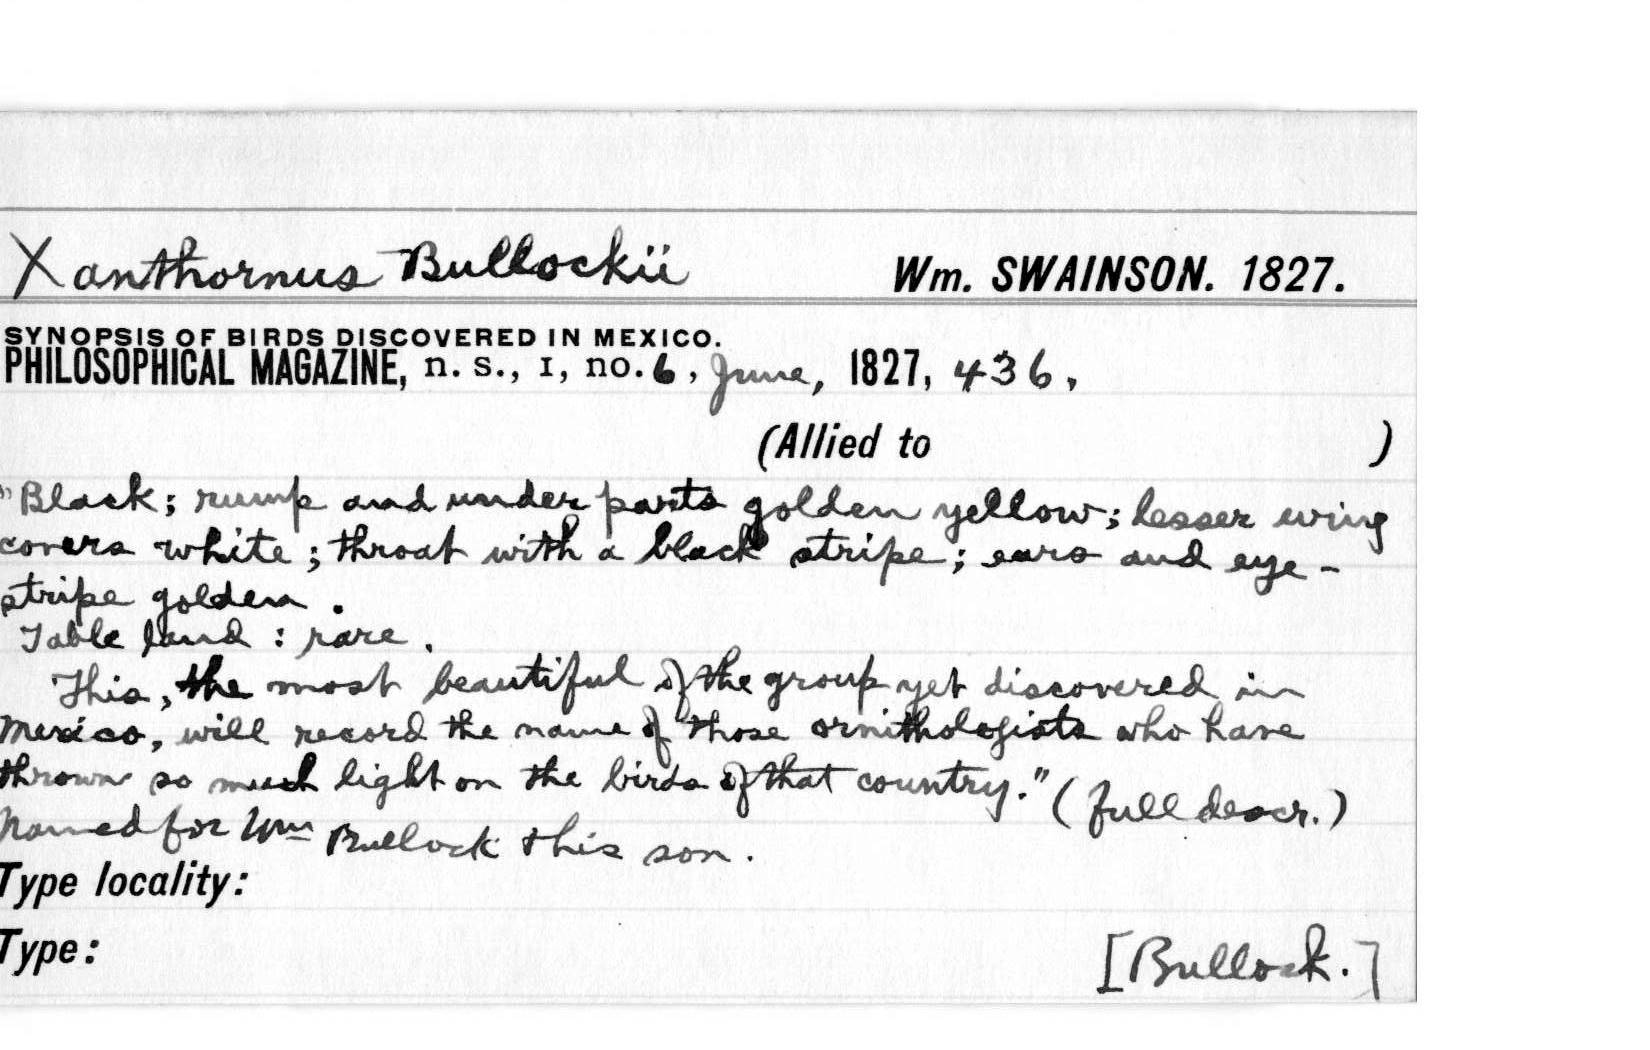 Xanthornus Bullockii Wm. SWAINSON. 1827.
SYNOPSIS OF BIRDS DISCOVERED IN MEXICO.
PHILOSOPHICAL MAGAZINE, n. s., I, no. 6, June, 1827, 436.
(Allied to )
"Black; rump and under parts golden yellow; lesser wing
covers white; throat with a black stripe; ears and eye-
stripe golden.
Table land: rare.
This, the most beautiful of the group yet discovered in
Mexico, will record the name of those ornithologists who have
thrown so much light on the birds of that country." (full descr.)
Named for Wm Bullock & his son.
Type locality:
Type:
[Bullock.]